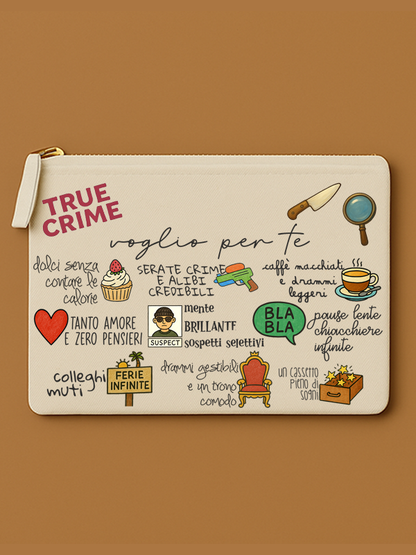 TRUE
CRIME
voglio per te
dolci senza
contare le
calorie
SERATE CRIME
E ALIBI
CREDIBILI
caffè macchiati
e drammi
leggeri
TANTO AMORE
E ZERO PENSIERI
SUSPECT
mente
BRILLANTE
sospetti selettivi
BLA
BLA
pause lente
chiacchiere
infinite
colleghi
muti
FERIE
INFINITE
drammi gestibili
e un trono
comodo
un cassetto
pieno di
sogni